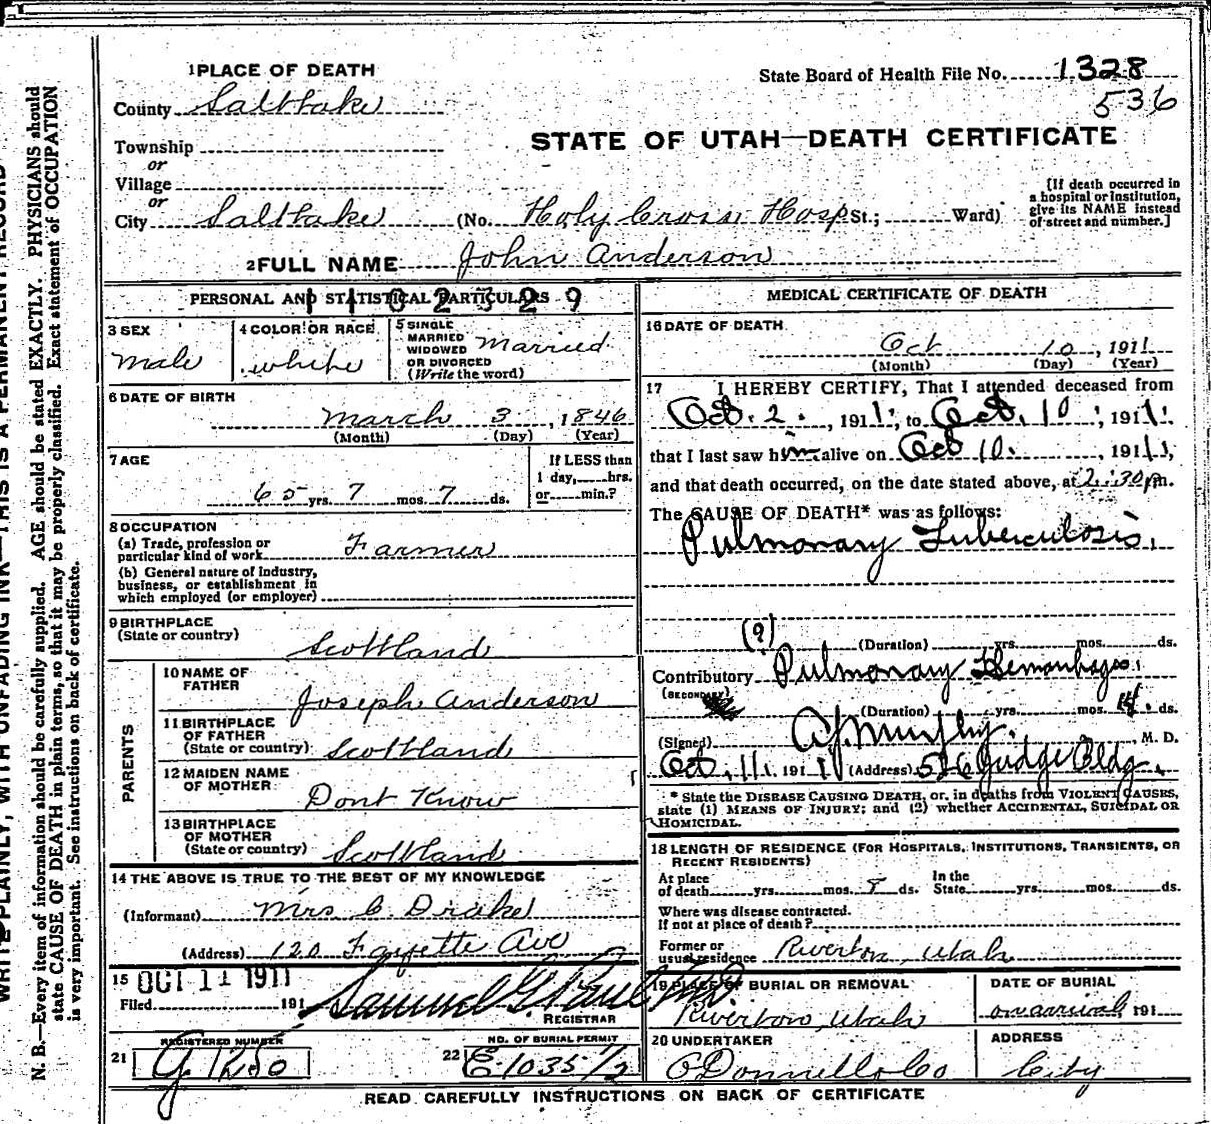 1 PLACE OF DEATH
State Board of Health File No. 1328
536
County Saltlake
STATE OF UTAH—DEATH CERTIFICATE
Township
or
Village
or
City Saltlake (No. Holy Cross Hosp St.; Ward)
[If death occurred in
a hospital or institution,
give its NAME instead
of street and number.]
2 FULL NAME John Anderson
PERSONAL AND STATISTICAL PARTICULARS
1102329
3 SEX
male
4 COLOR OR RACE
white
5 SINGLE
MARRIED
WIDOWED
OR DIVORCED
(Write the word)
Married
6 DATE OF BIRTH
March 3, 1846
(Month) (Day) (Year)
7 AGE
65 yrs. 7 mos. 7 ds.
If LESS than
1 day, hrs.
or min.?
8 OCCUPATION
(a) Trade, profession or
particular kind of work Farmer
(b) General nature of industry,
business, or establishment in
which employed (or employer)
9 BIRTHPLACE
(State or country)
Scottland
PARENTS
10 NAME OF
FATHER
Joseph Anderson
11 BIRTHPLACE
OF FATHER
(State or country) Scottland
12 MAIDEN NAME
OF MOTHER
Dont Know
13 BIRTHPLACE
OF MOTHER
(State or country) Scottland
14 THE ABOVE IS TRUE TO THE BEST OF MY KNOWLEDGE
(Informant) Mrs C. Drake
(Address) 120 Fayette Ave
15 OCT 11 1911
Filed 191
Samuel G. Paul
REGISTRAR
21 REGISTERED NUMBER
22 NO. OF BURIAL PERMIT
E. 1035 1/2
MEDICAL CERTIFICATE OF DEATH
16 DATE OF DEATH
Oct 10, 1911
(Month) (Day) (Year)
17 I HEREBY CERTIFY, That I attended deceased from
Oct. 2., 1911, to Oct. 10, 1911,
that I last saw him alive on Oct 10., 1911,
and that death occurred, on the date stated above, at 2:30 pm.
The CAUSE OF DEATH* was as follows:
Pulmonary Tuberculosis.
(?)
(Duration) yrs. mos. ds.
Contributory Pulmonary Hemorrhages.
(SECONDARY)
(Duration) yrs. mos. 14. ds.
(Signed) A.J. Murphy. M. D.
Oct. 11, 1911 (Address) 516 Judge Bldg.
* State the DISEASE CAUSING DEATH, or, in deaths from VIOLENT CAUSES,
state (1) MEANS OF INJURY; and (2) whether ACCIDENTAL, SUICIDAL OR
HOMICIDAL.
18 LENGTH OF RESIDENCE (FOR HOSPITALS, INSTITUTIONS, TRANSIENTS, OR
RECENT RESIDENTS)
At place
of death yrs. mos. 8 ds.
In the
State yrs. mos. ds.
Where was disease contracted.
If not at place of death?
Former or
usual residence Riverton, Utah
19 PLACE OF BURIAL OR REMOVAL
Riverton, Utah
DATE OF BURIAL
on arrival 191
20 UNDERTAKER
O'Donnell & Co
ADDRESS
City
READ CAREFULLY INSTRUCTIONS ON BACK OF CERTIFICATE
WRITE PLAINLY, WITH UNFADING INK—THIS IS A PERMANENT RECORD
N. B.—Every item of information should be carefully supplied. AGE should be stated EXACTLY. PHYSICIANS should
state CAUSE OF DEATH in plain terms, so that it may be properly classified. Exact statement of OCCUPATION
is very important. See instructions on back of certificate.